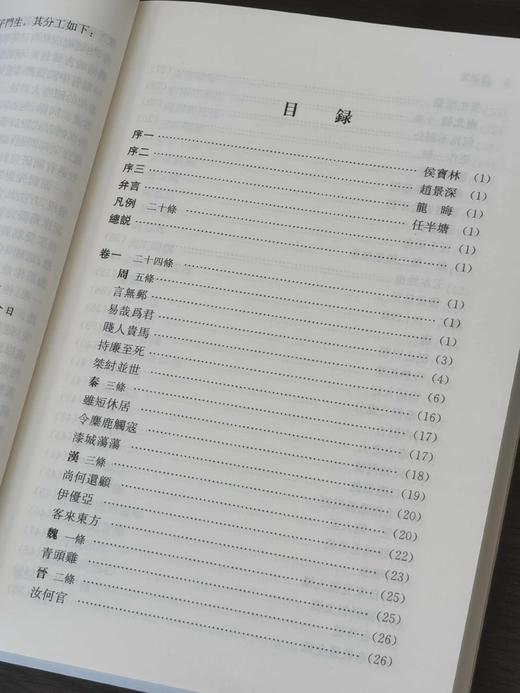 門生，其分工如下：
日
目録
序一 侯寶林 (1)
序二 趙景深 (1)
序三 龍晦 (1)
弁言 任半塘 (1)
凡例 二十條 (1)
總説 (1)
卷一 二十四條 (1)
周 五條 (1)
言無郵 (1)
易哉爲君 (3)
賤人貴馬 (4)
持廉至死 (6)
桀紂並世 (16)
秦 三條 (17)
雖短休居 (17)
令麋鹿觸寇 (18)
漆城蕩蕩 (19)
漢 三條 (20)
尚何還顧 (20)
伊優亞 (22)
客來東方 (23)
魏 一條 (25)
青頭雞 (25)
晉 二條 (26)
汝何官 (26)